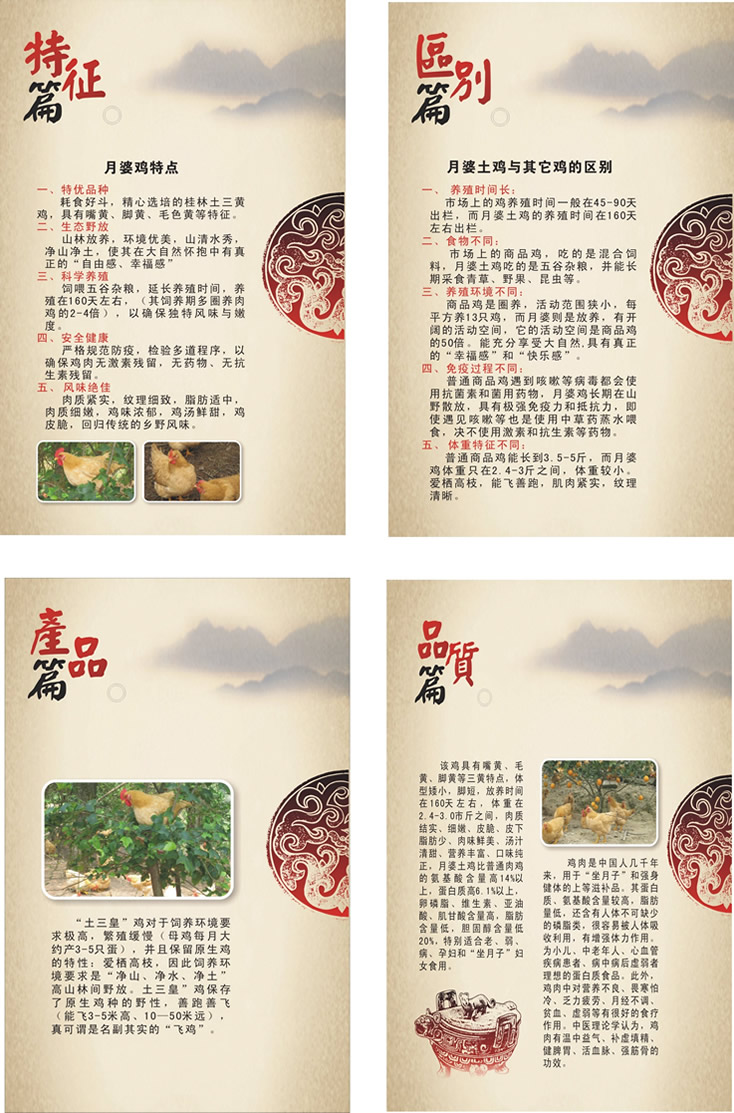 特征篇
月婆鸡特点
一、特优品种
耗食好斗，精心选培的桂林土三黄
鸡，具有嘴黄、脚黄、毛色黄等特征。
二、生态野放
山林放养，环境优美，山清水秀，
净山净土，使其在大自然怀抱中有真
正的“自由感、幸福感”
三、科学养殖
饲喂五谷杂粮，延长养殖时间，养
殖在160天左右，（其饲养期多圈养肉
鸡的2-4倍），以确保独特风味与嫩
度。
四、安全健康
严格规范防疫，检验多道程序，以
确保鸡肉无激素残留，无药物、无抗
生素残留。
五、风味绝佳
肉质紧实，纹理细致，脂肪适中，
肉质细嫩，鸡味浓郁，鸡汤鲜甜，鸡
皮脆，回归传统的乡野风味。
區别篇
月婆土鸡与其它鸡的区别
一、养殖时间长：
市场上的鸡养殖时间一般在45-90天
出栏，而月婆土鸡的养殖时间在160天
左右出栏。
二、食物不同：
市场上的商品鸡，吃的是混合饲
料，月婆土鸡吃的是五谷杂粮，并能长
期采食青草、野果、昆虫等。
三、养殖环境不同：
商品鸡是圈养，活动范围狭小，每
平方养13只鸡，而月婆则是放养，有开
阔的活动空间，它的活动空间是商品鸡
的50倍。能充分享受大自然，具有真正
的“幸福感”和“快乐感”。
四、免疫过程不同：
普通商品鸡遇到咳嗽等病毒都会使
用抗菌素和菌用药物，月婆鸡长期在山
野散放，具有极强免疫力和抵抗力，即
使遇见咳嗽等也是使用中草药蒸水喂
食，决不使用激素和抗生素等药物。
五、体重特征不同：
普通商品鸡能长到3.5-5斤，而月婆
鸡体重只在2.4-3斤之间，体重较小。
爱栖高枝，能飞善跑，肌肉紧实，纹理
清晰。
產品篇
“土三皇”鸡对于饲养环境要
求极高，繁殖缓慢（母鸡每月大
约产3-5只蛋），并且保留原生鸡
的特性：爱栖高枝，因此饲养环
境要求是“净山、净水、净土”
高山林间野放。土三皇”鸡保存
了原生鸡种的野性，善跑善飞
（能飞3-5米高、10—50米远），
真可谓是名副其实的“飞鸡”。
品質篇
该鸡具有嘴黄、毛
黄、脚黄等三黄特点，体
型矮小，脚短，放养时间
在160天左右，体重在
2.4-3.0市斤之间，肉质
结实、细嫩、皮脆、皮下
脂肪少、肉味鲜美、汤汁
清甜、营养丰富、口味纯
正，月婆土鸡比普通肉鸡
的氨基酸含量高14%以
上，蛋白质高6.1%以上，
卵磷脂、维生素、亚油
酸、肌甘酸含量高，脂肪
含量低，胆固醇含量低
20%，特别适合老、弱、
病、孕妇和“坐月子”妇
女食用。
鸡肉是中国人几千年
来，用于“坐月子”和强身
健体的上等滋补品。其蛋白
质、氨基酸含量较高，脂肪
量低，还含有人体不可缺少
的磷脂类，很容易被人体吸
收利用，有增强体力作用。
为小儿、中老年人、心血管
疾病患者、病中病后虚弱者
理想的蛋白质食品。此外，
鸡肉中对营养不良、畏寒怕
冷、乏力疲劳、月经不调、
贫血、虚弱等有很好的食疗
作用。中医理论学认为，鸡
肉有温中益气、补虚填精、
健脾胃、活血脉、强筋骨的
功效。